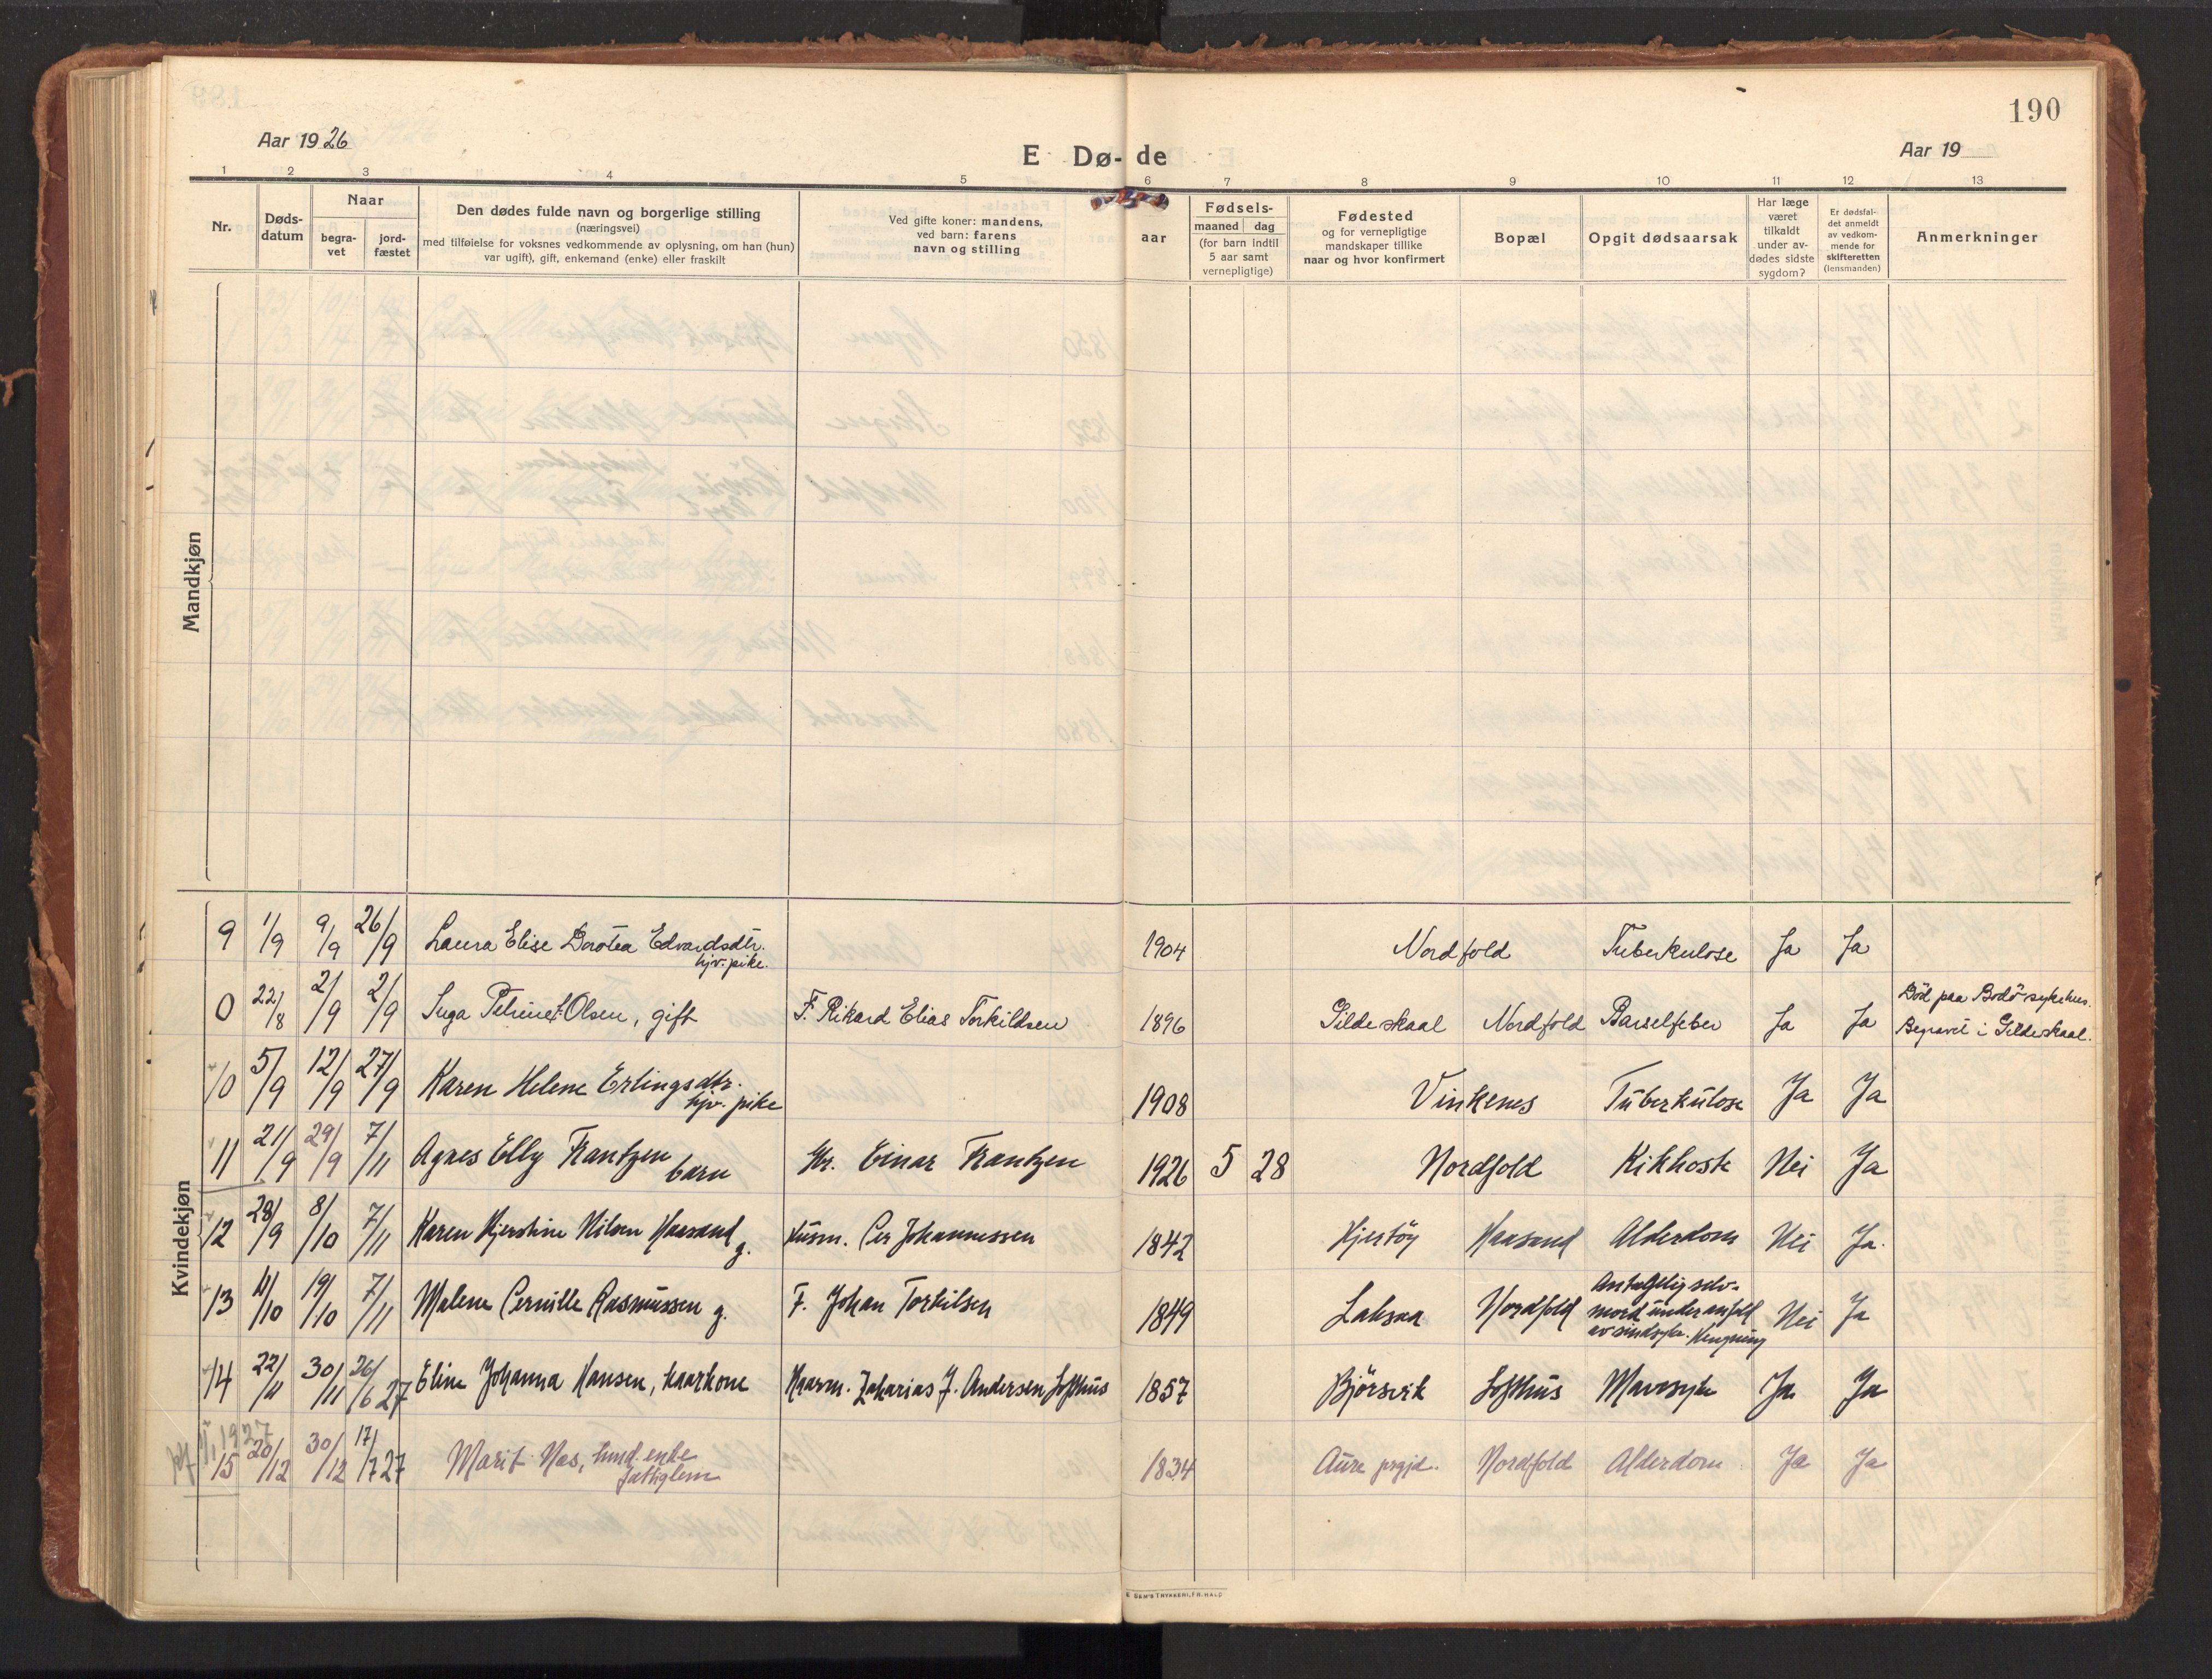 190
Aar 1926
E Dø- de
Aar 19
1 2 3 4 5 6 7 8 9 10 11 12 13
Nr.
Døds-
datum
Naar
begra-
vet
jord-
fæstet
Den dødes fulde navn og borgerlige stilling
(næringsvei)
med tilføielse for voksnes vedkommende av oplysning, om han (hun)
var ugift), gift, enkemand (enke) eller fraskilt
Ved gifte koner: mandens,
ved barn: farens
navn og stilling
aar
Fødsels-
maaned dag
(for barn indtil
5 aar samt
vernepligtige)
Fødested
og for vernepligtige
mandskaper tillike
naar og hvor konfirmert
Bopæl
Opgit dødsaarsak
Har læge
været
tilkaldt
under av-
dødes sidste
sygdom?
Er dødsfal-
det anmeldt
av vedkom-
mende for
skifteretten
(lensmanden)
Anmerkninger
Mandkjøn
Kvindekjøn
9 1/9 9/9 26/9 Laura Elise Dorotea Edvardsdtr. 1904 Nordfold Tuberkulose Ja Ja
hjv. pike.
0 22/8 2/9 2/9 Inga Petrine Olsen, gift F. Rikard Elias Torkildsen 1896 Gildeskaal Nordfold Barselfeber Ja Ja Død paa Bodö sykehus.
Begravet i Gildeskaal.
10 5/9 12/9 27/9 Karen Helene Erlingsdtr. 1908 Vinkenes Tuberkulose Ja Ja
hjv. pike
11 21/9 29/9 7/11 Agnes Elly Frantzen Hr. Einar Frantzen 1926 5 28 Nordfold Kikhoste Nei Ja
barn
12 28/9 8/10 7/11 Karen Kjerstine Nilsen Haasand g. Husm. Per Johannessen 1842 Hjertöy Haasand Alderdom Nei Ja.
13 11/10 19/10 7/11 Malene Pernille Rasmussen g. F. Johan Torkilsen 1849 Laksaa Nordfold Antagelig selv-
mord under anfald
av sindsyke. Hengning Nei Ja
14 22/11 30/11 26/6 27 Eline Johanna Hansen, kaarkone Kaarm. Zakarias J. Andersen Lofthus 1857 Björsvik Lofthus Mavesyke Ja Ja
1927
15 20/12 30/12 17/7 27 Marit Nes, enke 1834 Aure prgjd. Nordfold Alderdom Ja Ja
fattiglem
E SEM'S TRYKKERI, FR. HALD